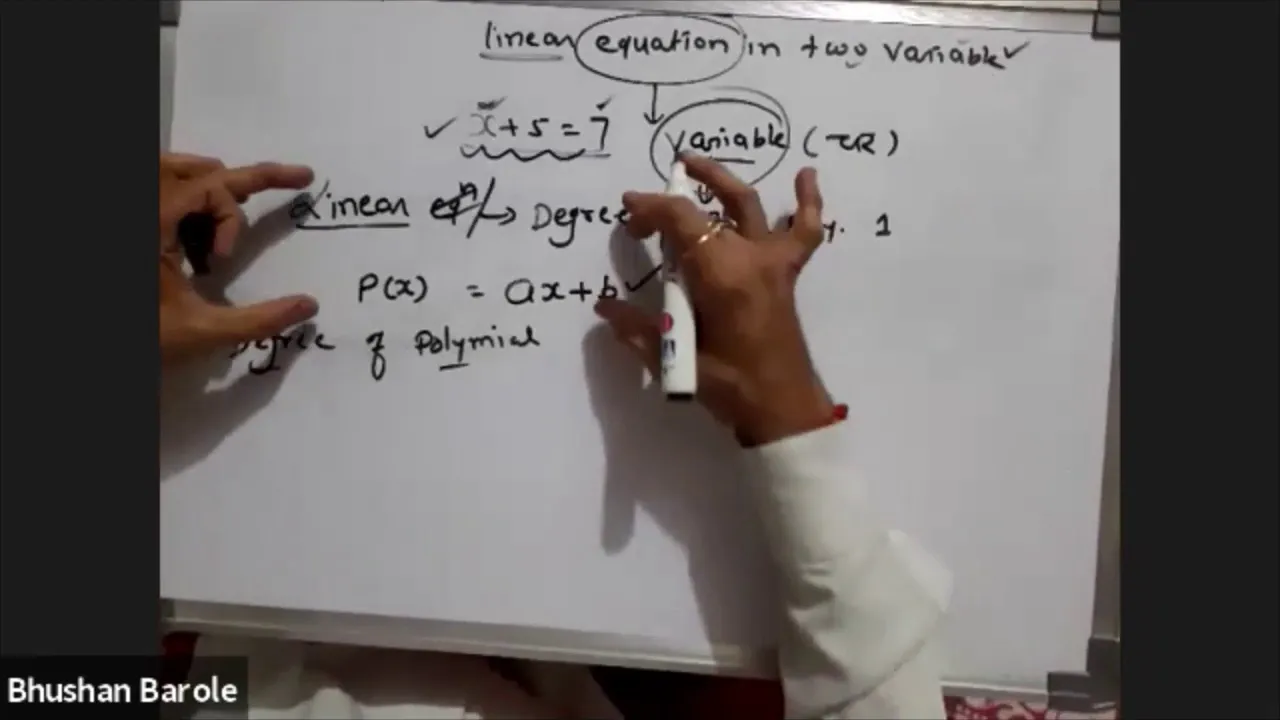 linear equation in two variable ✓
✓ x + 5 = 7 variable (IR)
Linear eqⁿ → Degree 1
P(x) = ax+b ✓
Degree of Polymial
Bhushan Barole